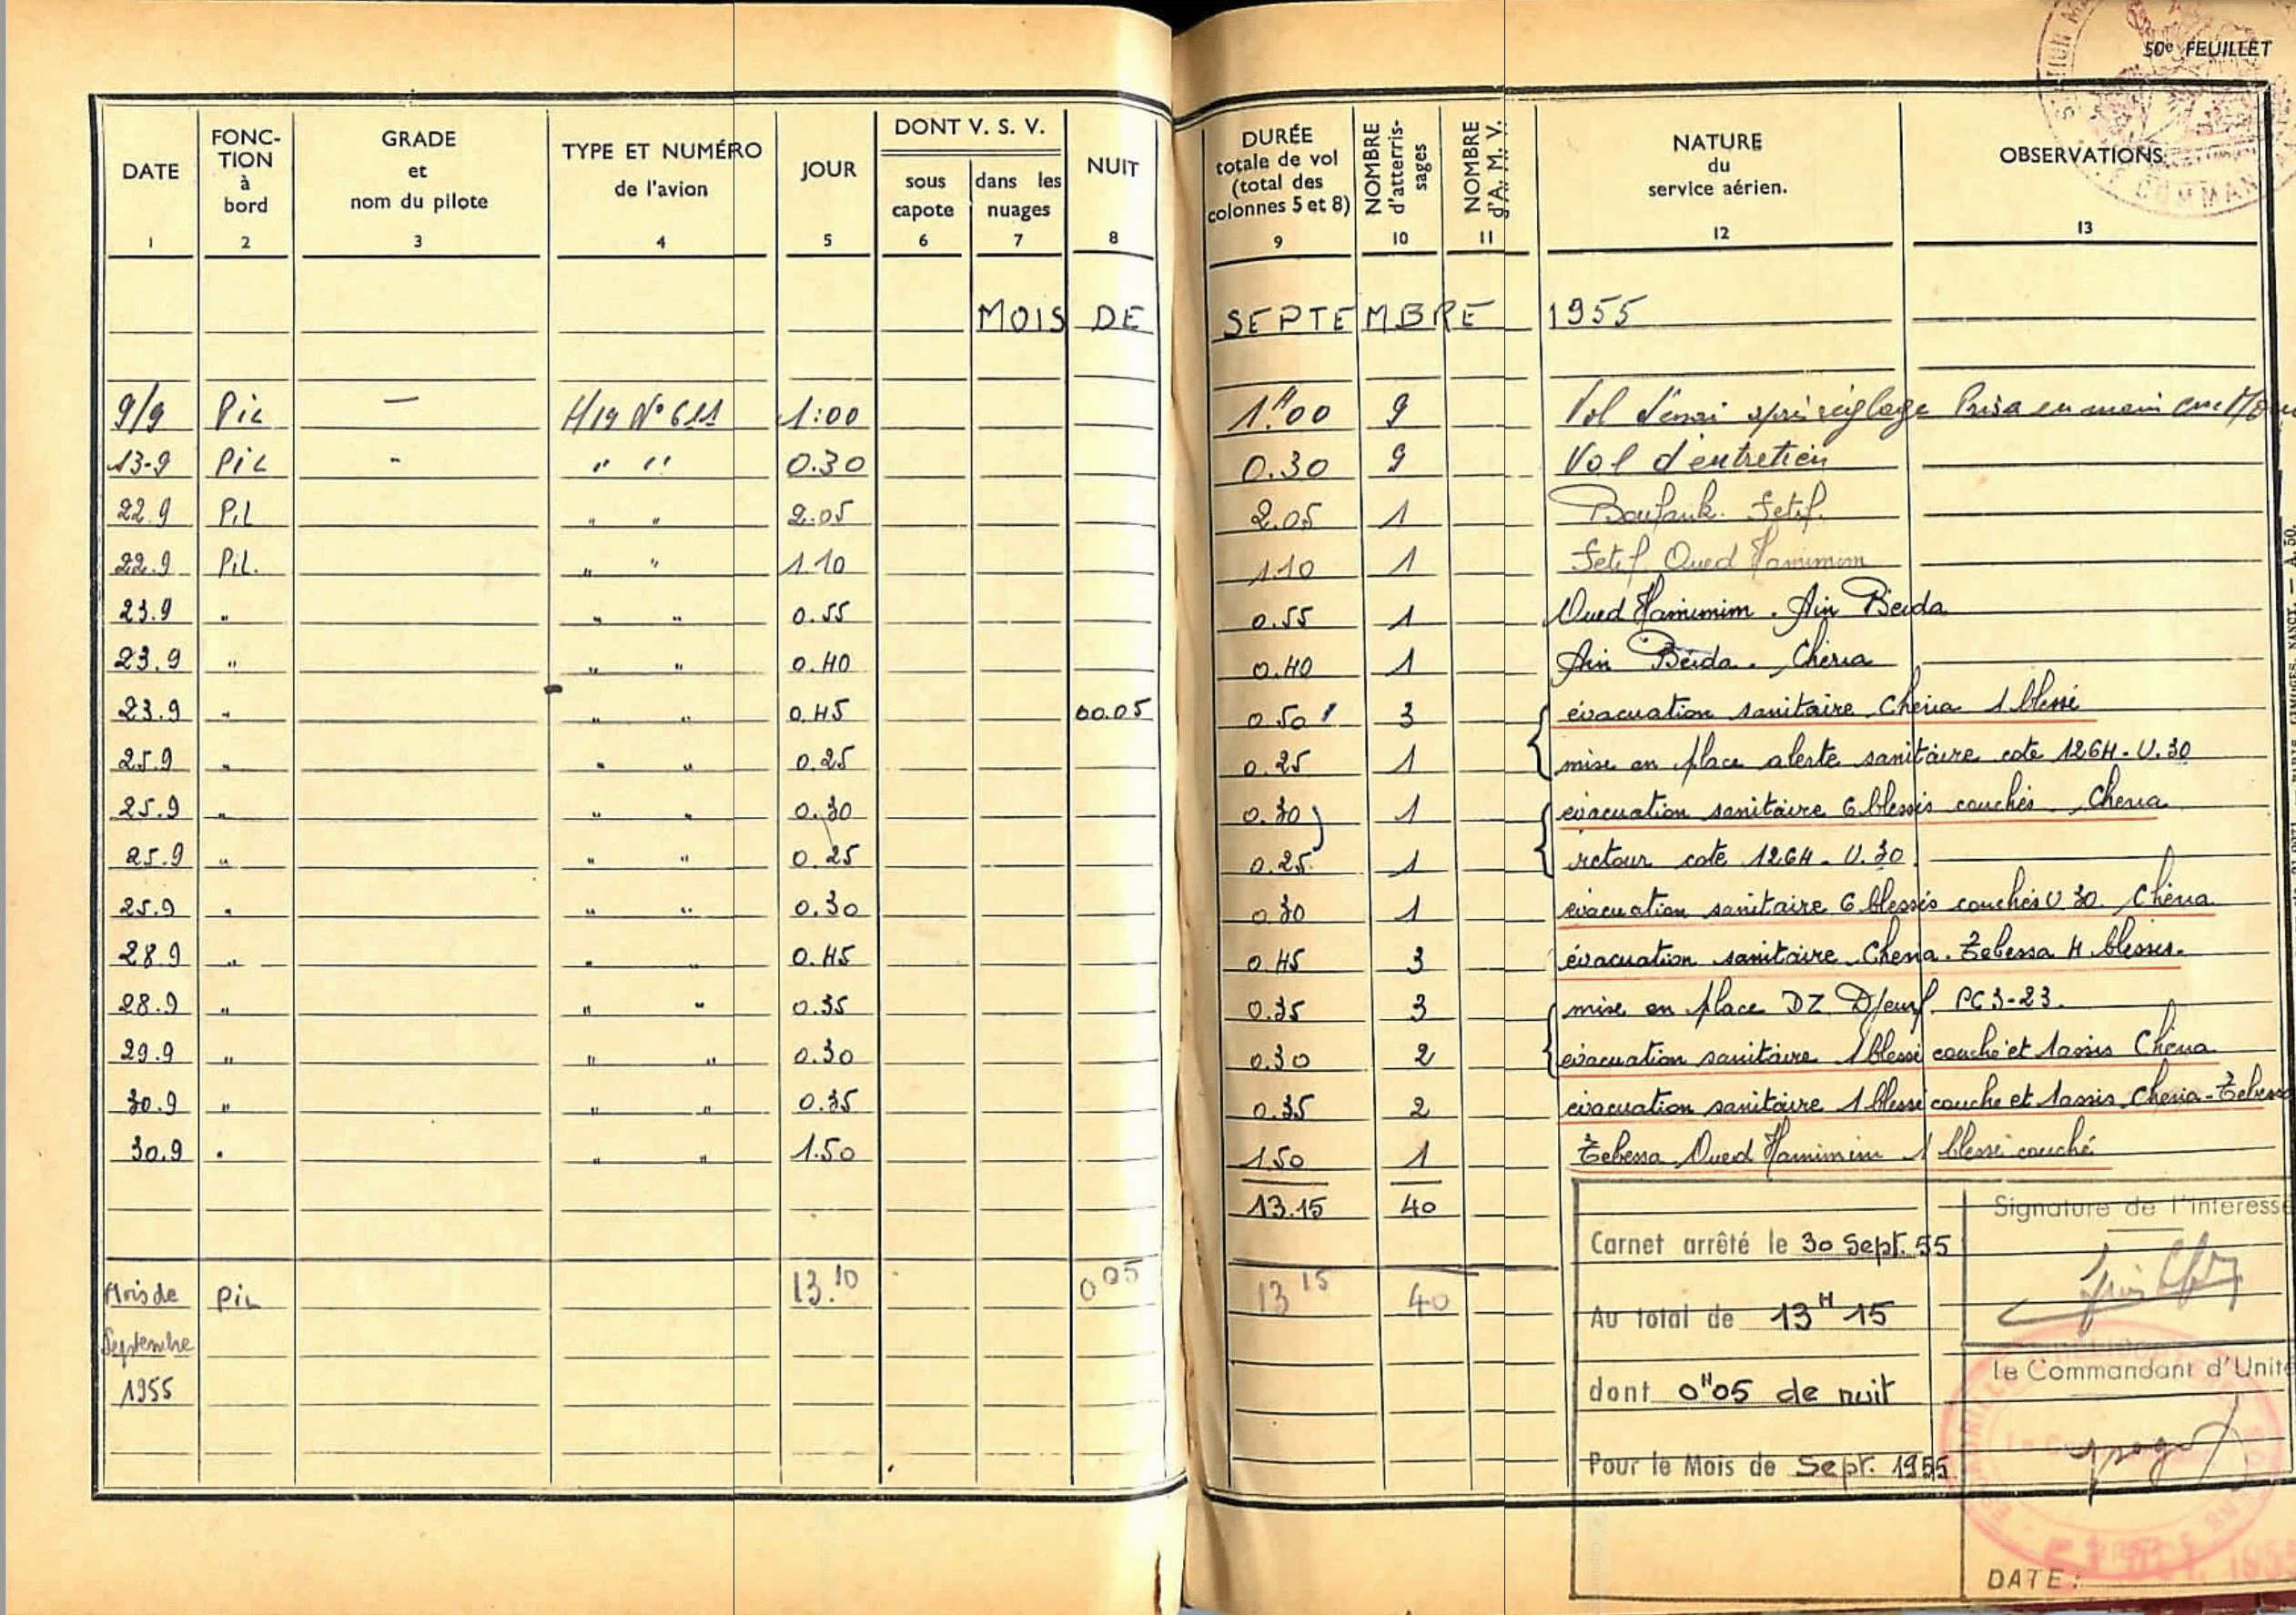 50e FEUILLET
DATE 1
FONC-TION à bord 2
GRADE et nom du pilote 3
TYPE ET NUMÉRO de l'avion 4
JOUR 5
DONT V. S. V.
sous capote 6
dans les nuages 7
NUIT 8
DURÉE totale de vol (total des colonnes 5 et 8) 9
NOMBRE d'atterris-sages 10
NOMBRE d'A. M. V. 11
NATURE du service aérien. 12
OBSERVATIONS 13
MOIS DE SEPTEMBRE 1955
9/9 Pil — H19 N° 611 1:00 1H00 9 Vol d'essai après réglage Prise en main
13-9 Pil " " " 0.30 0.30 9 Vol d'entretien
22.9 Pil " " 2.05 2.05 1 Boufarik. Setif.
22.9 Pil. " " 1.10 1.10 1 Setif Oued Hamimim
23.9 " " " 0.55 0.55 1 Oued Hamimim. Ain Beida
23.9 " " " 0.40 0.40 1 Ain Beida. Chéria
23.9 " " " 0.45 00.05 0.50 3 évacuation sanitaire Chéria 1 blessé
25.9 " " " 0.25 0.25 1 mise en place alerte sanitaire cote 1264-U.30
25.9 " " " 0.30 0.30 1 évacuation sanitaire 6 blessés couchés Cheria
25.9 " " " 0.25 0.25 1 retour cote 1264-U.30
25.9 " " " 0.30 0.30 1 évacuation sanitaire 6 blessés couchés U 30. Chéria
28.9 " " " 0.45 0.45 3 évacuation sanitaire Cheria. Tebessa 4 blessés.
28.9 " " " 0.35 0.35 3 mise en place DZ Djeurf PC3-23.
29.9 " " " 0.30 0.30 2 évacuation sanitaire 1 blessé couché et 1 assis Chéria
30.9 " " " 0.35 0.35 2 évacuation sanitaire 1 blessé couché et 1 assis Cheria-Tebessa
30.9 " " " 1.50 1.50 1 Tebessa Oued Hamimim 1 blessé couché
13.15 40
Mois de Pil 13.10 0 05 13 15 40
Septembre
1955
Carnet arrêté le 30 Sept. 55
Au total de 13H 15
dont 0H05 de nuit
Pour le Mois de Sept. 1955
Signature de l'interessé
le Commandant d'Unité
DATE: